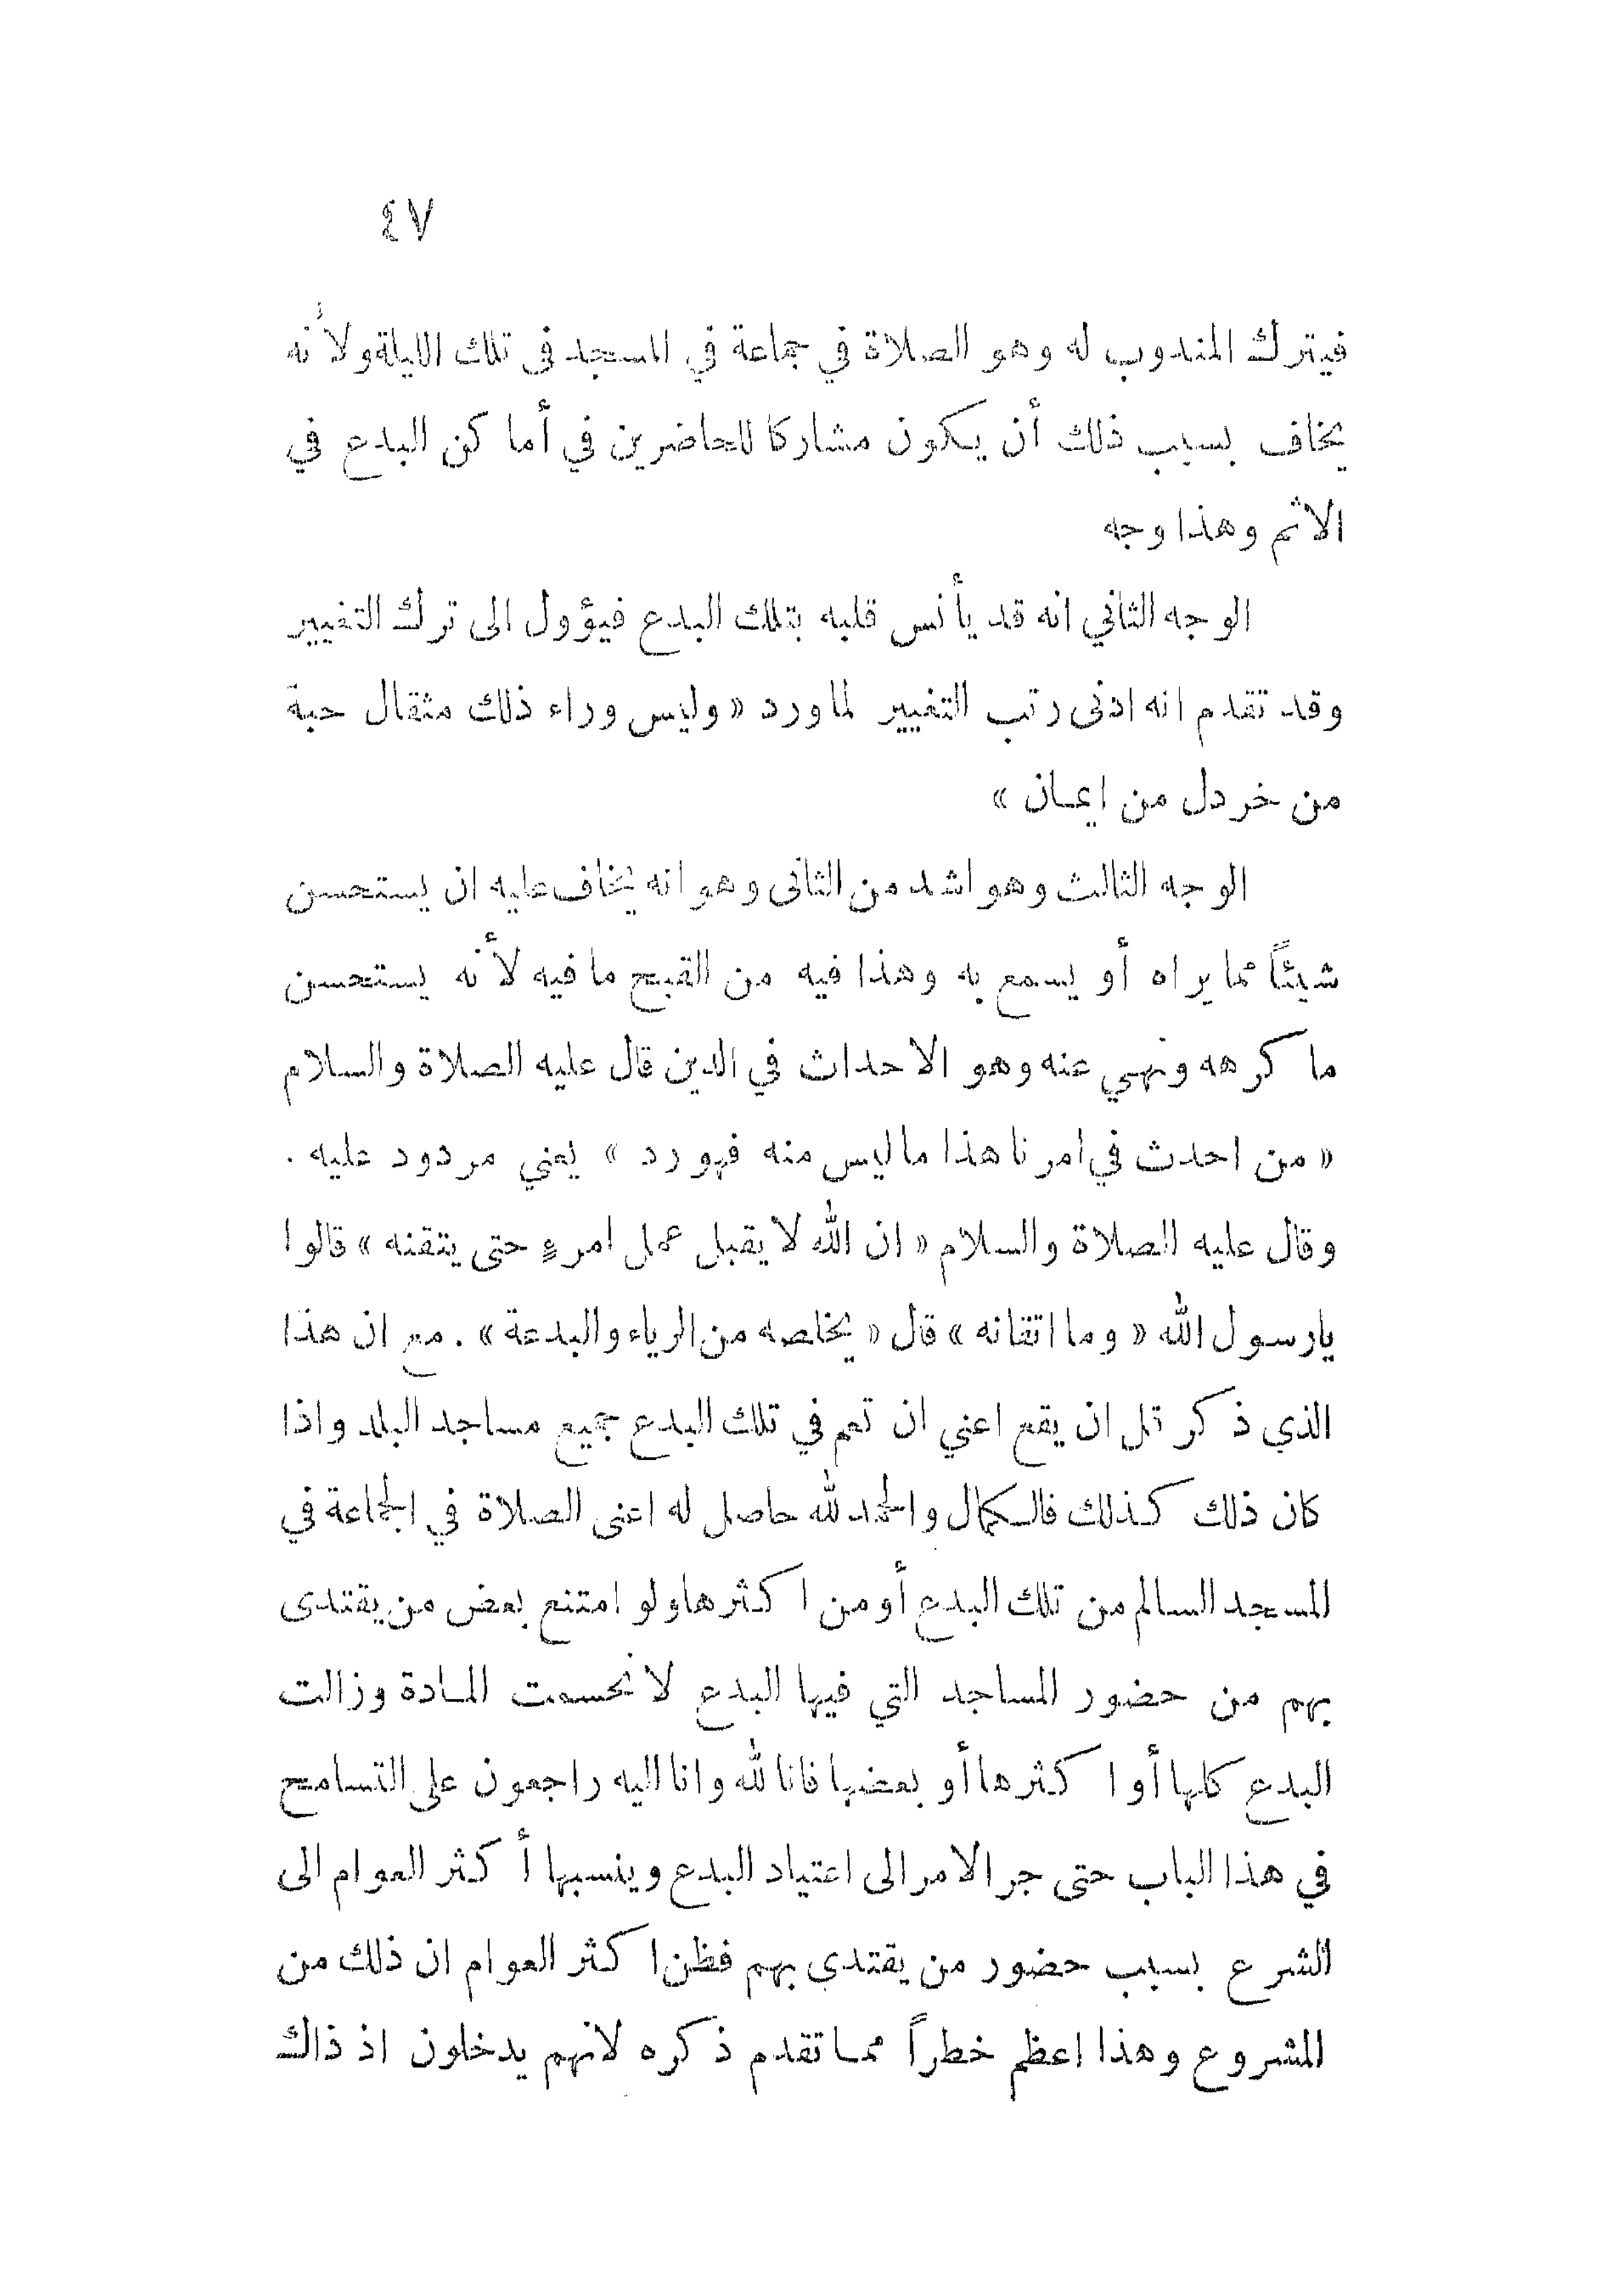 ٤٧
فيترك المندوب له وهو الصلاة في جماعة في المسجد فى تلك الليلة ولأنه
يخاف بسبب ذلك أن يكون مشاركا للحاضرين في أماكن البدع في
الاثم وهذا وجه
الوجه الثاني انه قد يأنس قلبه بتلك البدع فيؤول الى ترك التغيير
وقد تقدم انه ادنى رتب التغيير لما ورد «وليس وراء ذلك مثقال حبة
من خردل من ايمان»
الوجه الثالث وهو اشد من الثانى وهو انه يخاف عليه ان يستحسن
شيئاً مما يراه أو يسمع به وهذا فيه من القبح ما فيه لأنه يستحسن
ما كرهه ونهي عنه وهو الاحداث في الدين قال عليه الصلاة والسلام
«من احدث في امرنا هذا ما ليس منه فهو رد» يعني مردود عليه .
وقال عليه الصلاة والسلام «ان الله لا يقبل عمل امرءٍ حتى يتقنه» قالوا
يارسول الله «وما اتقانه» قال «يخلصه من الرياء والبدعة». مع ان هذا
الذي ذكر قل ان يقع اعني ان تعم في تلك البدع جميع مساجد البلد واذا
كان ذلك كذلك فالكمال والحمد لله حاصل له اعنى الصلاة في الجماعة في
المسجد السالم من تلك البدع أو من اكثرها ولو امتنع بعض من يقتدى
بهم من حضور المساجد التي فيها البدع لانحسمت المادة وزالت
البدع كلها أو اكثرها أو بعضها فانا لله وانا اليه راجعون على التسامح
في هذا الباب حتى جر الامر الى اعتياد البدع وينسبها أكثر العوام الى
الشرع بسبب حضور من يقتدى بهم فظن اكثر العوام ان ذلك من
المشروع وهذا اعظم خطراً مما تقدم ذكره لانهم يدخلون اذ ذاك